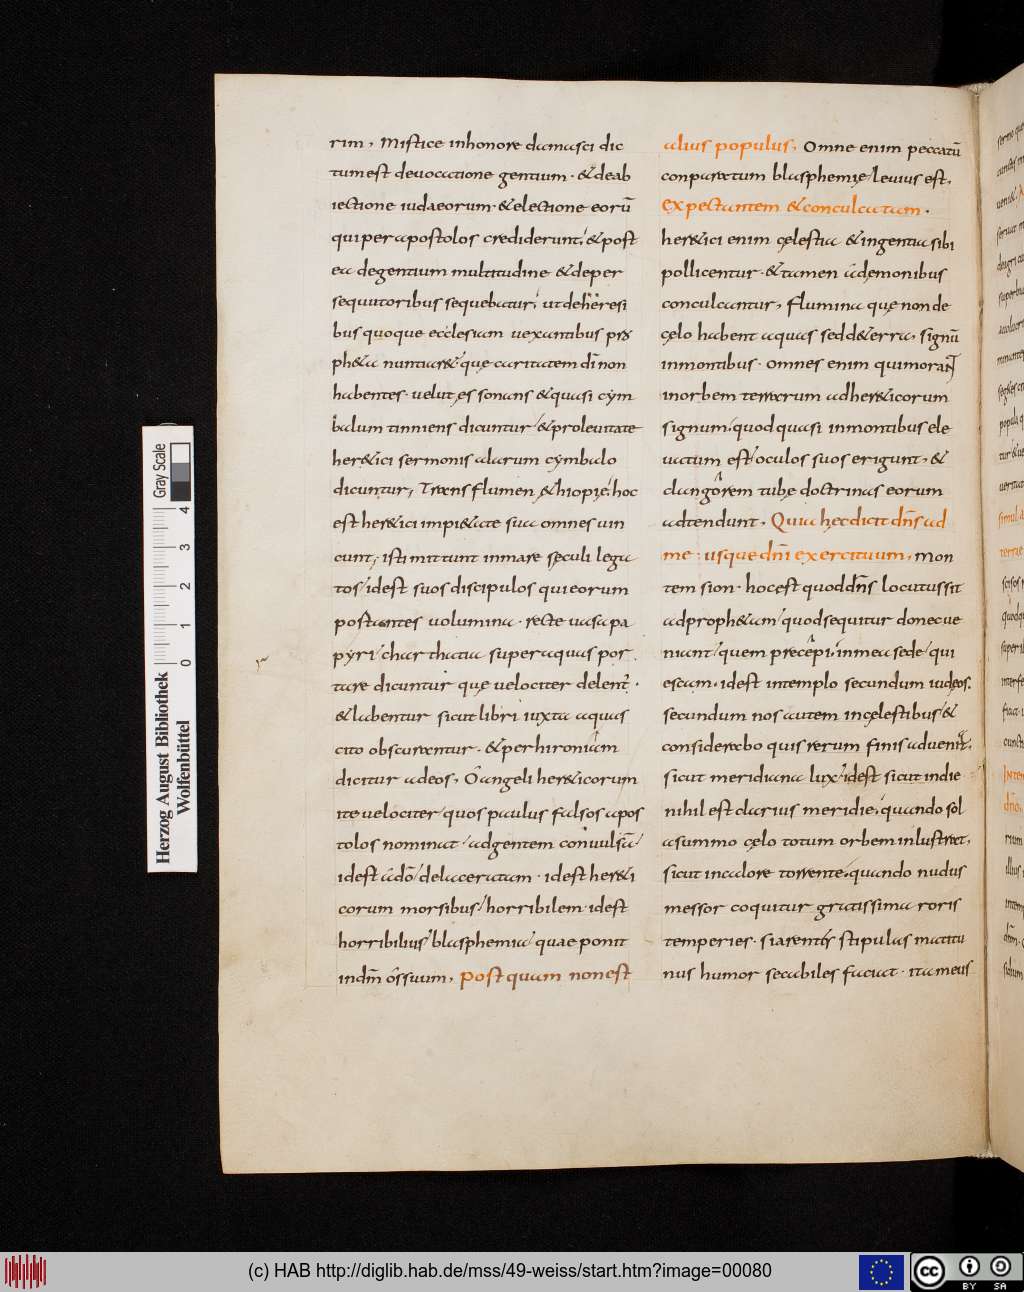 rim, Mistice inhonore damasci dic
tum est devocatione gentium · & deab
iectione iudaeorum · & electione eorū
qui per apostolos crediderunt, & post
ea degentium multitudine & deper
sequutoribus sequebatur, ut de heresi
bus quoque ecclesiam uexantibus pro
ph&a nuntiar& que caritatem dī non
habentes · uelut, es sonans & quasi cym
balum tinniens dicuntur & proleuitate
her&ici sermonis alarum cymbalo
dicuntur; Trans flumen &hiopię hoc
est her&ici impi&ate sua omnes uin
cunt, isti mittunt inmare seculi lega
tos / idest suos discipulos qui eorum
postantes uolumina · recte uasa pa
pyri / charthatia super aquas por
tare dicuntur quę uelociter delent ·
& labentur sicut libri iuxta aquas
cito obscurantur · & per hironiam
dicitur adeos, O angeli her&icorum
ite uelociter / quos paulus falsos apos
tolos nominat / adgentem conuulsā
idest ādō / delaceratam · idest her&i
corum morsibus / horribilem idest
horribilius blasphemia / quae ponit
indm̄ os suum, post quam non est
alius populus, Omne enim peccatū
conparatum blasphemię leuius est,
Expectantem & conculcatam ·
her&ici enim cęlestia & ingentia sibi
pollicentur · & tamen ademonibus
conculcantur, flumina quę non de
cęlo habent aquas sed d&erra, signū
inmontibus · Omnes enim qui morant
inorbem terrarum adher&icorum
signum / quod quasi inmontibus ele
uatum est / oculos suos erigunt, &
clangorem tubę doctrinas eorum
adtendunt, Quia hec dicit dn̄s ad
me · usque dn̄i exercituum, mon
tem sion · hoc est quod dn̄s locutus sit
adproph&am / quod sequitur donec ue
niant / quem precępi, in mea sede / qui
escam · idest intemplo secundum iudeos.
secundum nos autem incęlestibus / &
considerabo quis rerum finis adueniat,
sicut meridiana lux idest sicut indie
nihil est clarius meridie, quando sol
asummo cęlo totum orbem inlustrat,
sicut incalore torrente, quando nudus
messor coquitur gratissima roris
temperies · si arentes stipulas matitu
nus humor secabiles faciat · ita meus
Herzog August Bibliothek
Wolfenbüttel
Gray Scale
0 1 2 3 4
(c) HAB http://diglib.hab.de/mss/49-weiss/start.htm?image=00080
cc BY SA